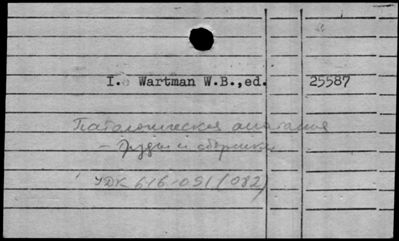 I. Wartman W.B.,ed. 25587
Патологическая анатомия
- Труды и сборники
УДК 616-091(082)